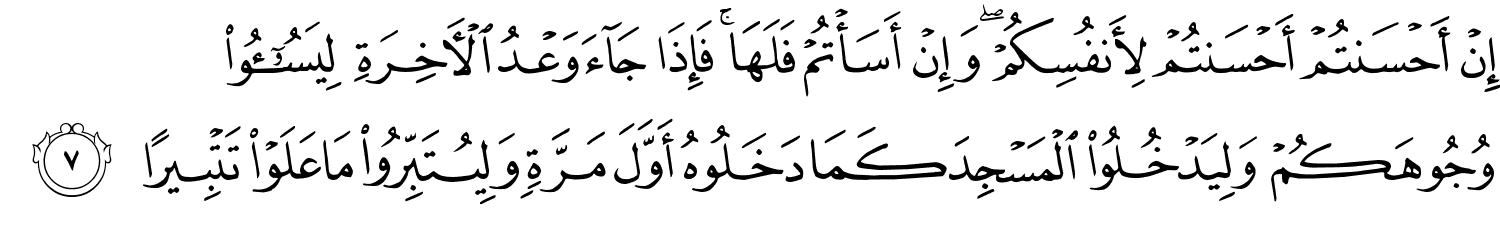 إِنْ أَحْسَنتُمْ أَحْسَنتُمْ لِأَنفُسِكُمْ ۖ وَإِنْ أَسَأْتُمْ فَلَهَا ۚ فَإِذَا جَآءَ وَعْدُ ٱلْأَخِرَةِ لِيَسُـۥٓـُٔوا۟
وُجُوهَكُمْ وَلِيَدْخُلُوا۟ ٱلْمَسْجِدَ كَمَا دَخَلُوهُ أَوَّلَ مَرَّةٍ وَلِيُتَبِّرُوا۟ مَا عَلَوْا۟ تَتْبِيرًا ٧